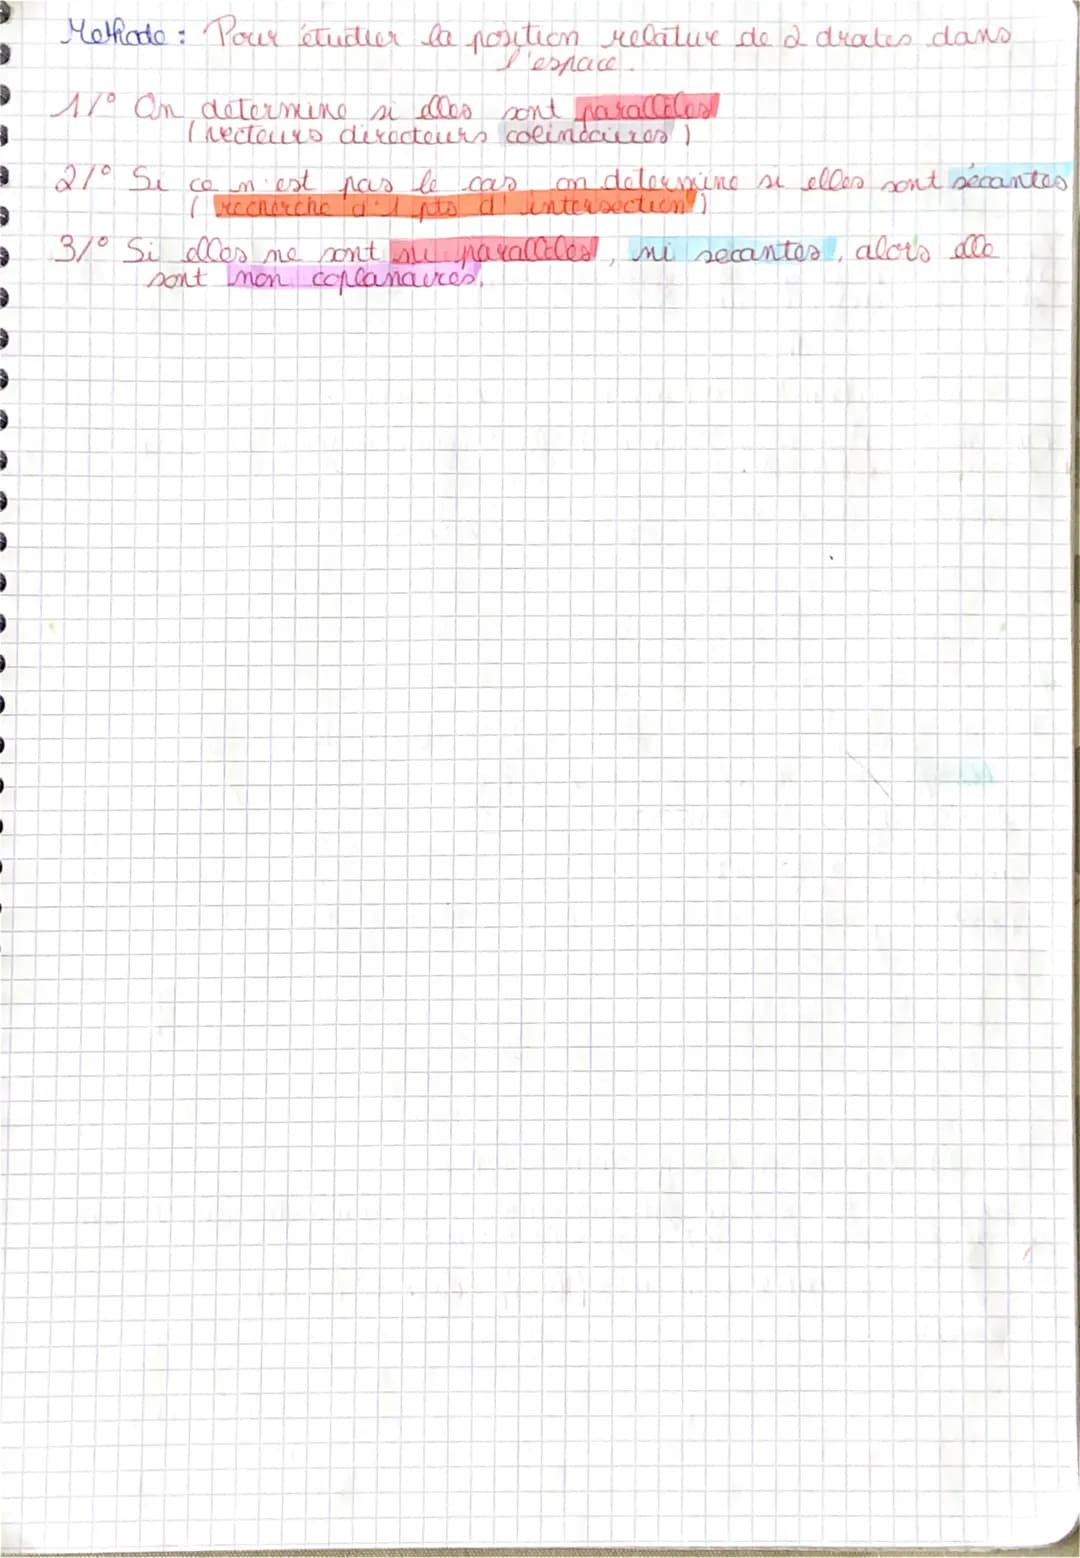 Methode : Pour étudier la position relative de 2 droites dans
l'espace.
1/° On détermine si elles sont parallèles
(vecteurs directeurs colinéaires)
2/° Si ce n'est pas le cas on determine si elles sont sécantes
(recherche d'1 pto d'intersection)
3/° Si elles ne sont ni parallèles, ni secantes, alors elle
sont non coplanaires.